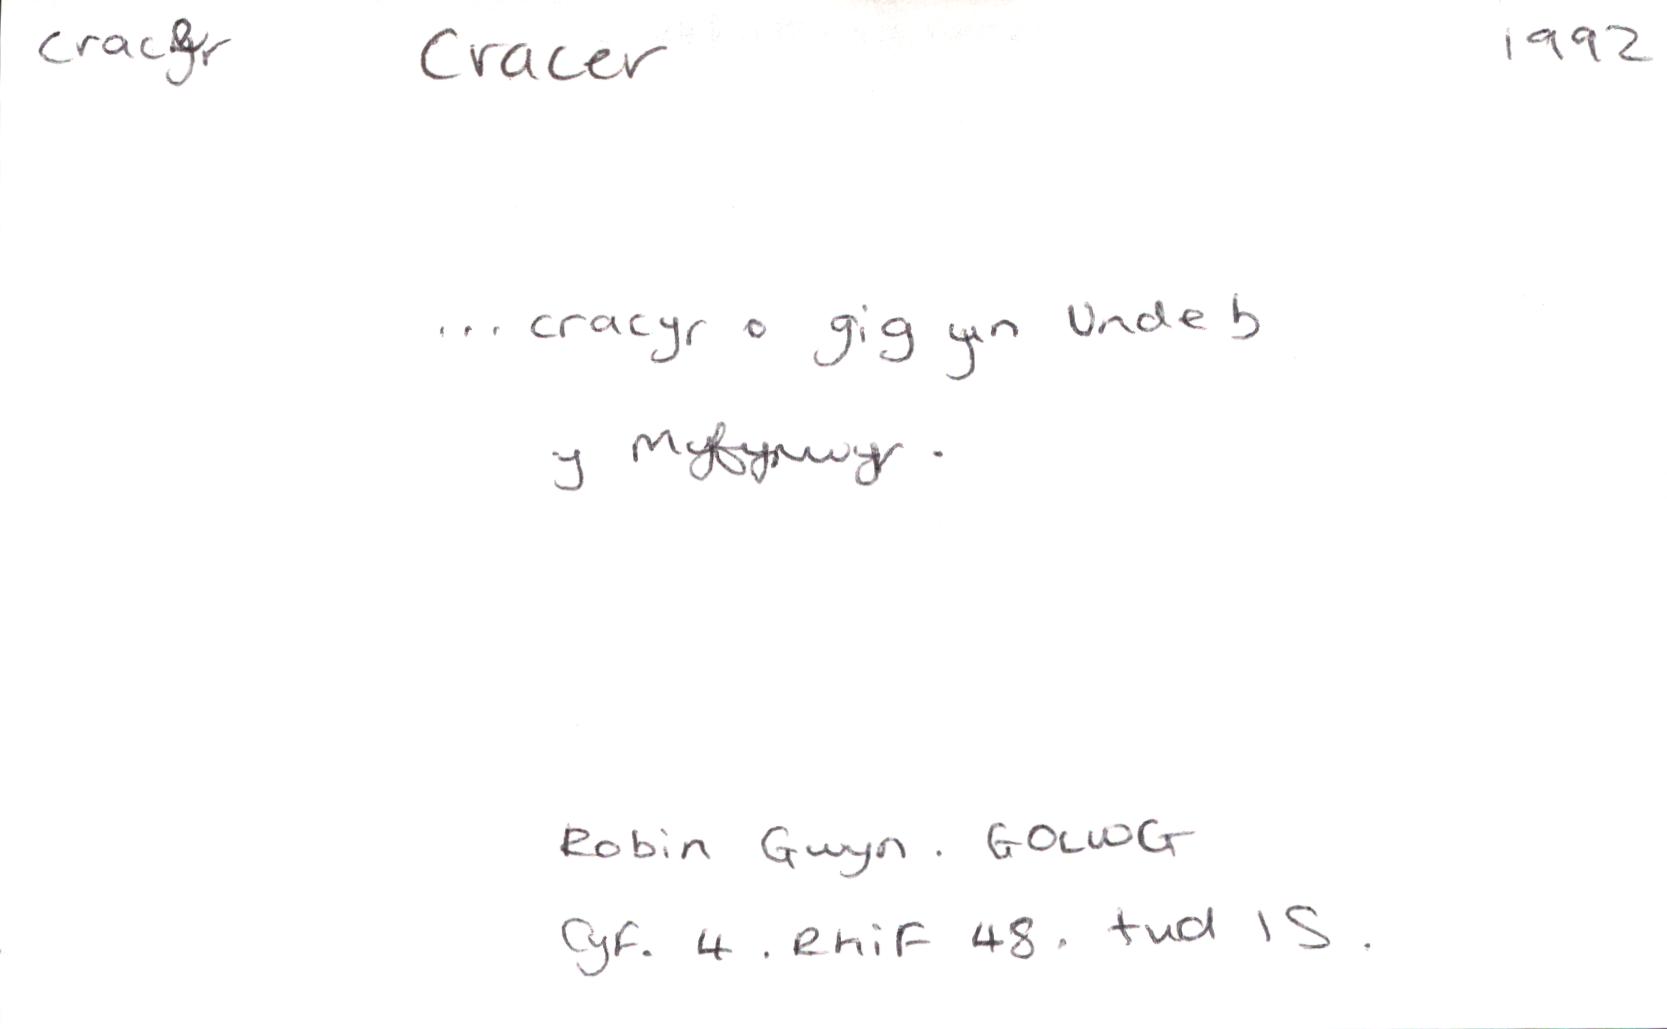 cracyr Cracer 1992
... cracyr o gig yn Undeb
y Myfyrwyr.
Robin Gwyn. GOLWG
Cyf. 4. Rhif 48. tud 15.